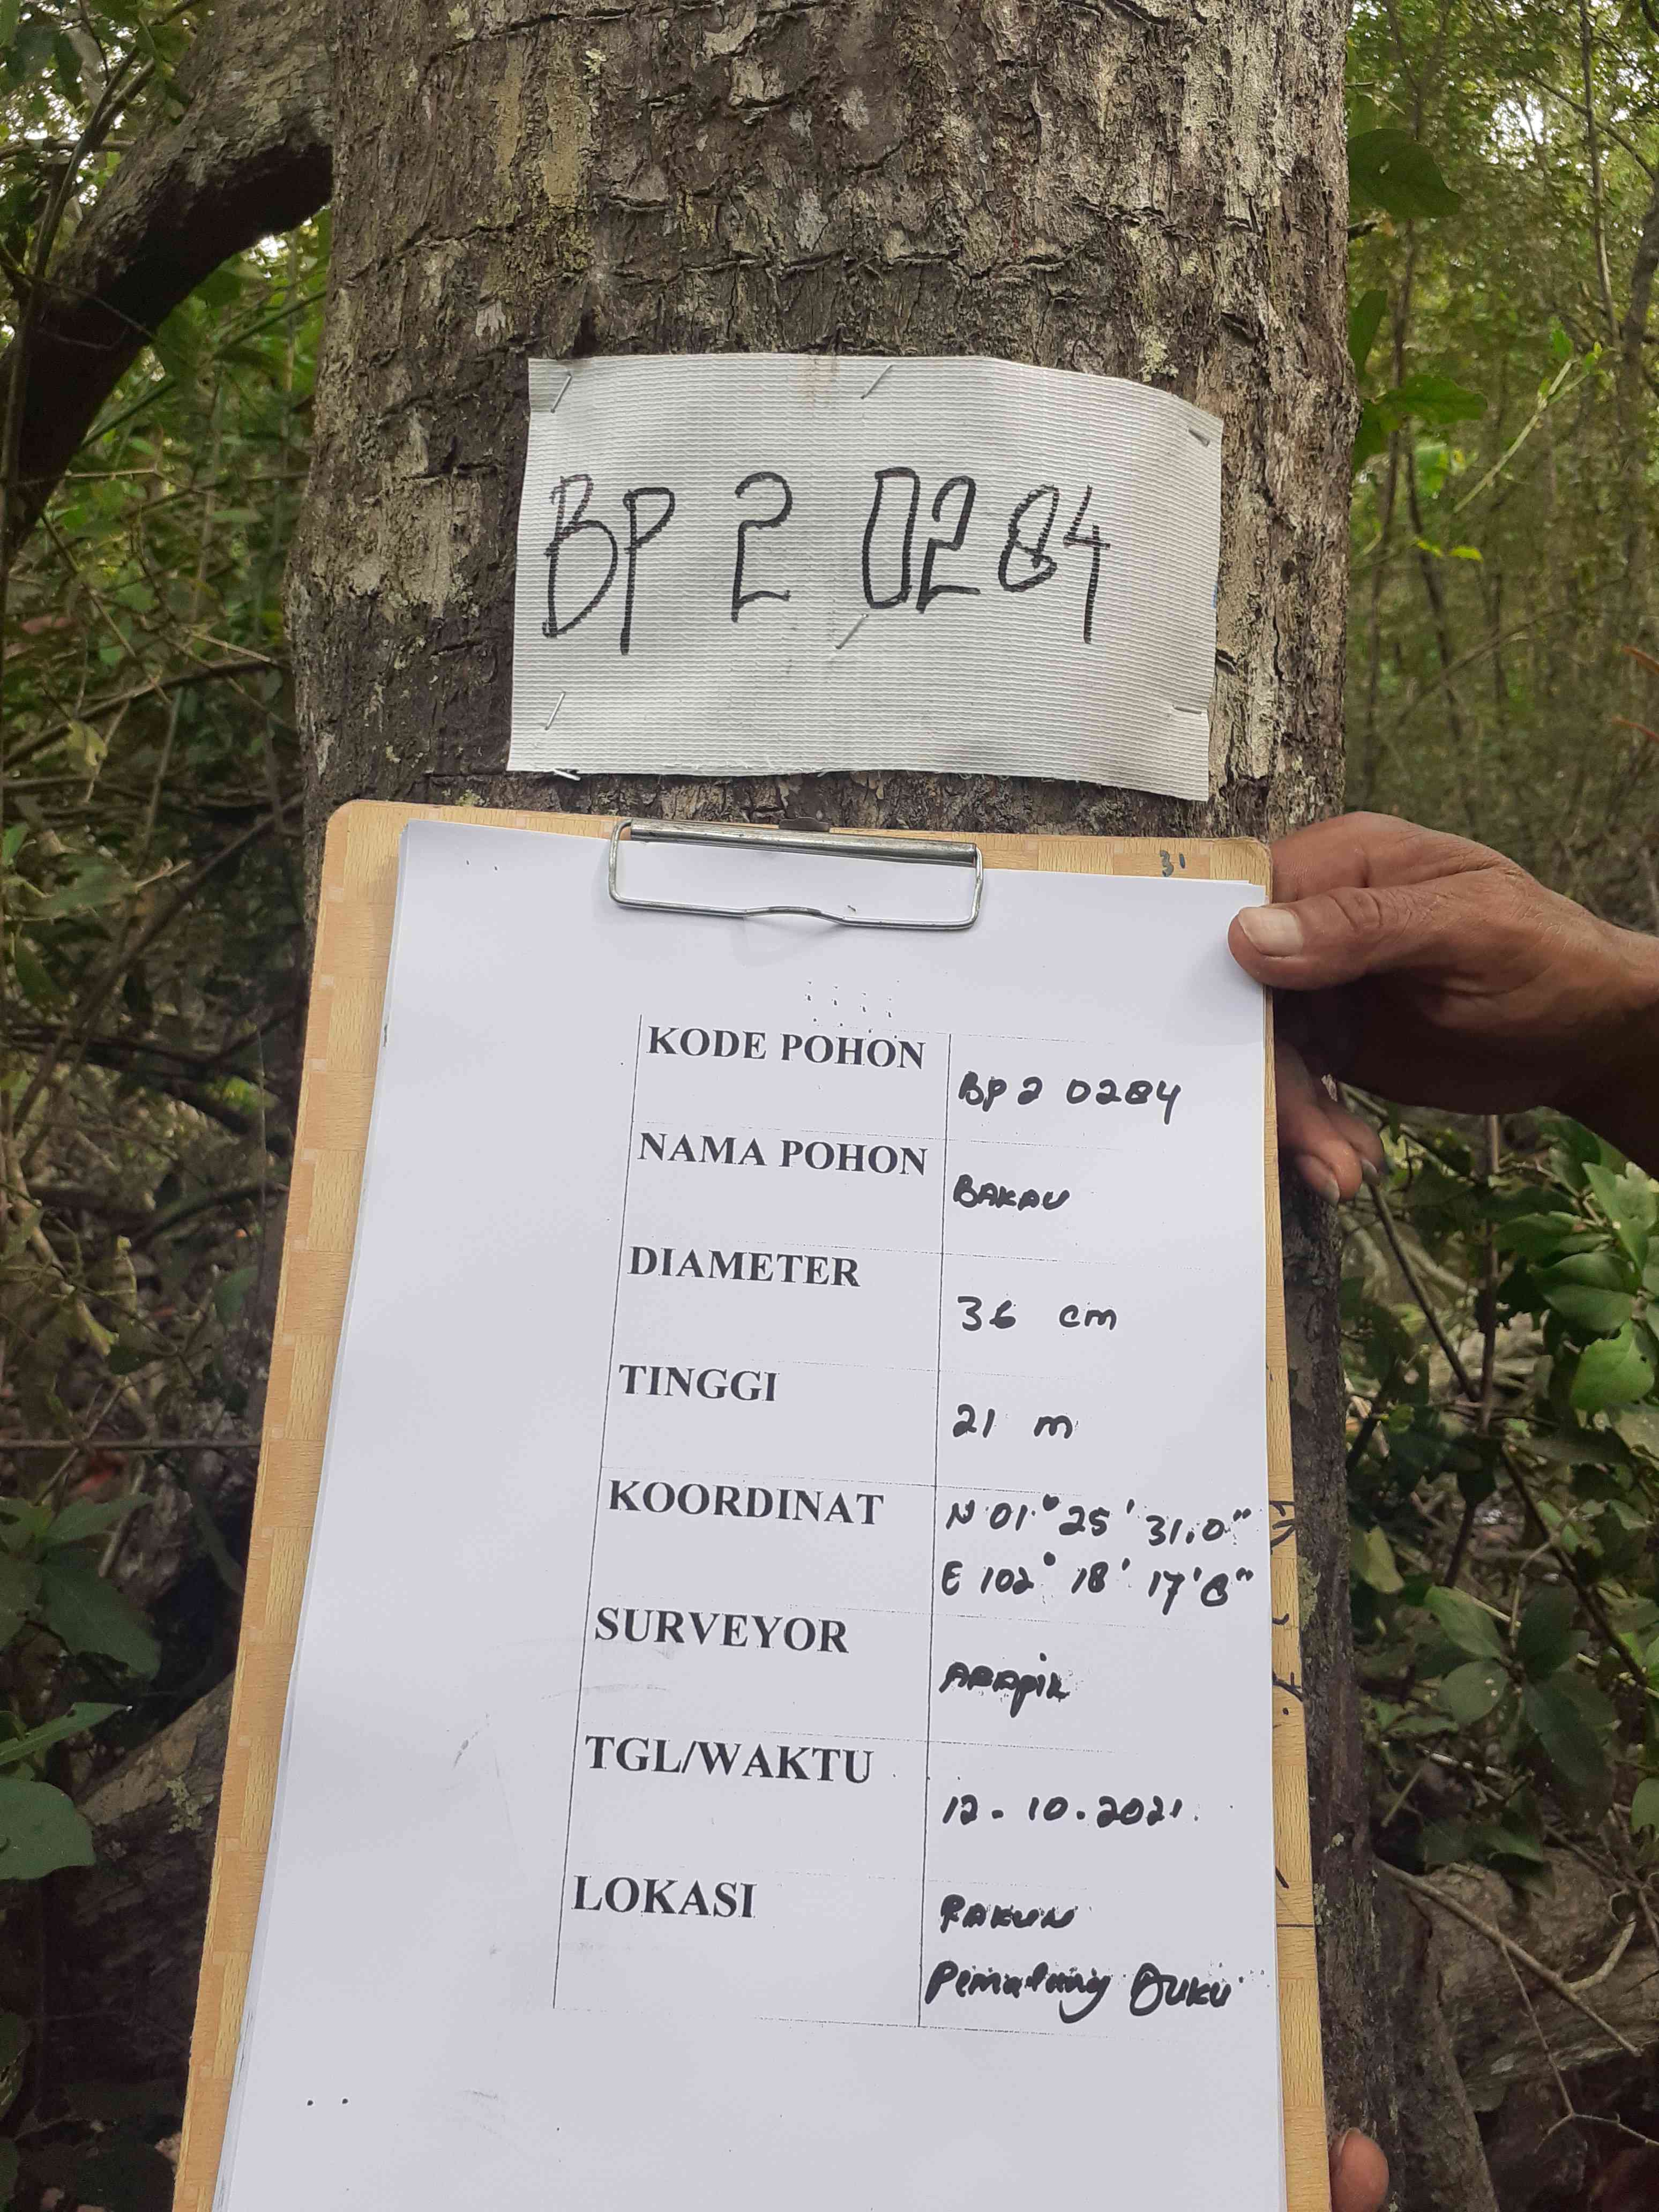 BP 2 0284
31
KODE POHON
BP 2 0284
NAMA POHON
BAKAU
DIAMETER
36 cm
TINGGI
21 m
KOORDINAT
N 01° 25' 31.0"
E 102° 18' 17'8"
SURVEYOR
TGL/WAKTU
12-10.2021.
LOKASI
RAKUN
Pematang Duku